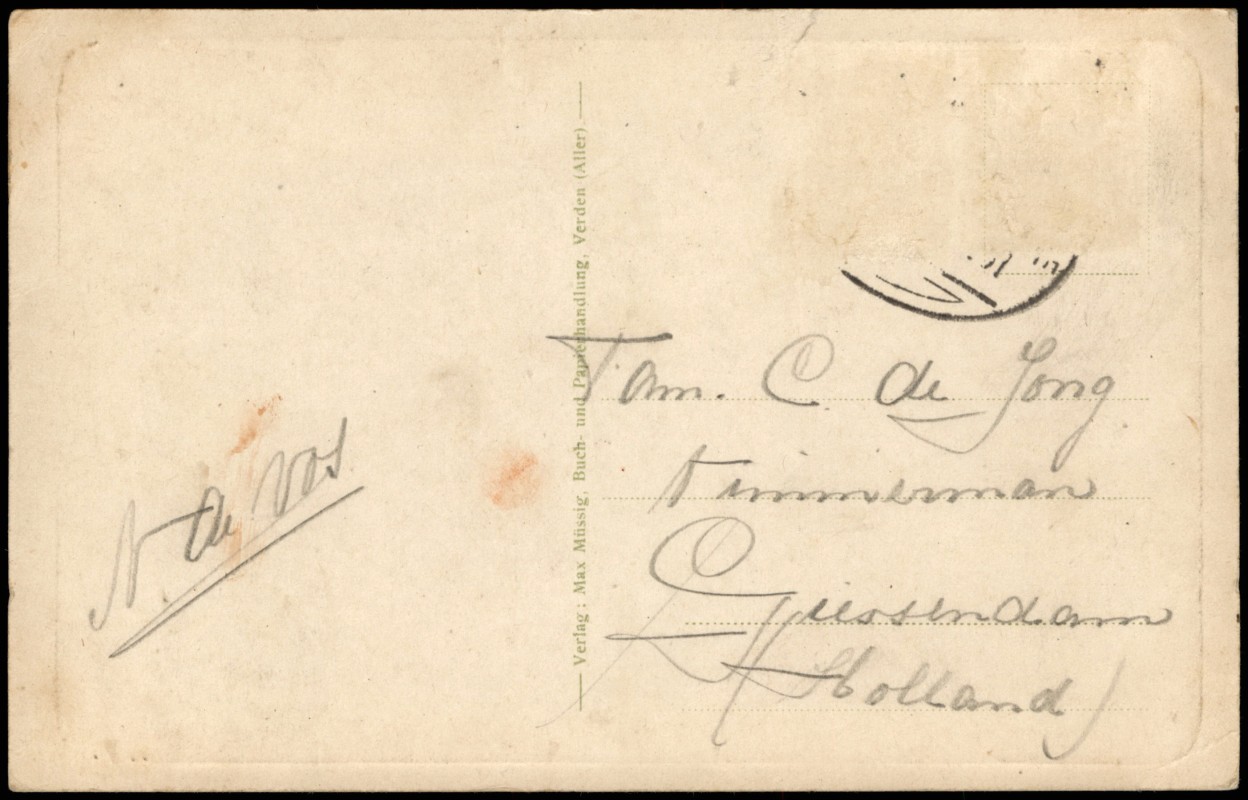 N. de Vos
Verlag: Max Müssig, Buch- und Papierhandlung, Verden (Aller)
Fam. C. de Jong
timmerman
Giessendam
(Holland)